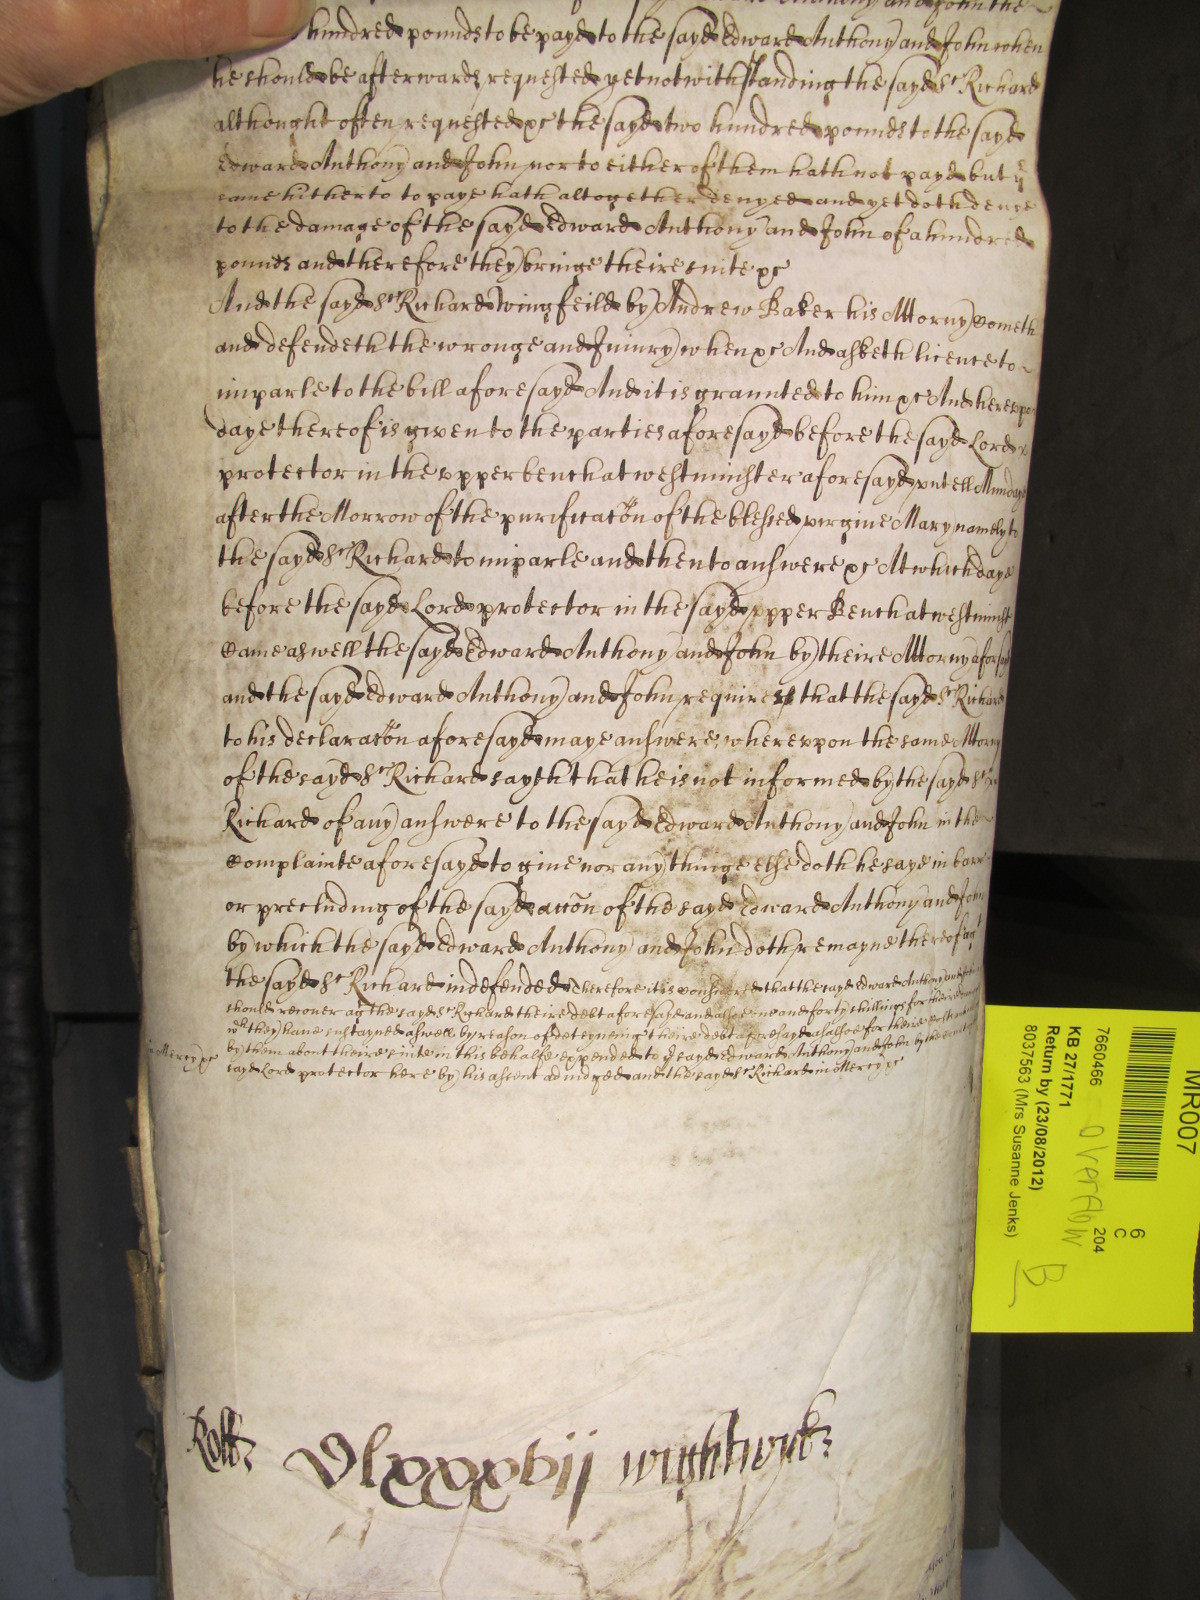 Anthony and John the
hundred pounds to be payd to the sayd Edward Anthony and John when
he should be afterwards requested yet notwithstanding the sayd Sr Richard
althought often requested &c the sayd two hundred pounds to the sayd
Edward Anthony and John nor to either of them hath not payd but ye
same hitherto to paye hath altogether denyed and yet doth denye
to the damage of the sayd Edward Anthony and John of a hundred
pounds and therefore they bringe theire suite &c
And the sayd Sr Richard Wingfeild by Andrew Baker his Attorny Cometh
and defendeth the wronge and Iniury when &c And asketh licence to
imparle to the bill aforesayd And it is graunted to him &c And hereupon
daye thereof is given to the parties aforesayd before the sayd Lord
protector in the upper bench at westminster aforesayd untell Munday
after the Morrow of the purificacon of the blessed virgine Mary namely to
the sayd Sr Richard to imparle and then to answere &c At which daye
before the sayd Lord protector in the sayd upper Bench at westminst
Came aswell the sayd Edward Anthony and John by theire Attorny aforsayd
and the sayd Edward Anthony and John require that the sayd Sr Richard
to his declaracon aforesayd maye answere, whereupon the same Attorny
of the sayd Sr Richard sayth that he is not informed by the sayd Sr
Richard of any answere to the sayd Edward Anthony and John in the
Complainte aforesayd to give nor any thinge else doth he saye in barr
or precluding of the sayd accon of the sayd Edward Anthony and John
by which the sayd Edward Anthony and John doth remayne thereof agt
the sayd Sr Richard indefended Therefore it is considered that the sayd Edward Anthony and John
should recover agt the sayd Sr Richard theire debt aforesayd and alsoe and forty shillings for theire
wch they have sustayned aswell by reason of deteyneing theire debt aforesayd as alsoe for theire
by them about theire suite in this behalfe expended to ye sayd Edward Anthony and John by the
sayd Lord protector here by his assent adiudged and the sayd Sr Richard in Mercy &c
in Mercy &c
Roll
Dlxxxvij wightwyck
MR007
7660466
6
C
204
KB 27/1771
overflow
Return by (23/08/2012)
8037563 (Mrs Susanne Jenks)
B